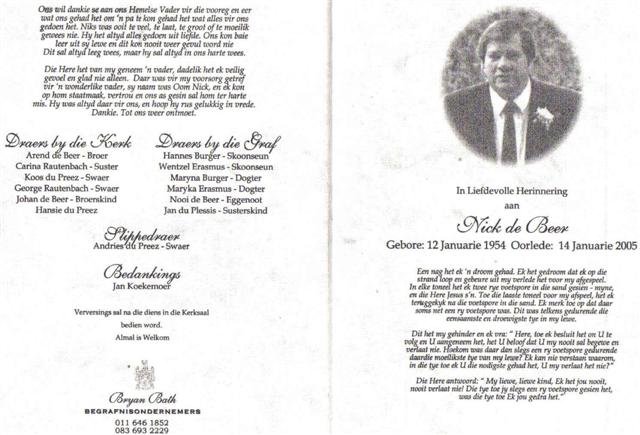 Ons wil dankie se aan ons Hemelse Vader vir die voorreg en eer
wat ons gehad het om 'n pa te kon gehad het wat alles vir ons
gedoen het. Niks was ooit te veel, te laat, te groot of te moeilik
gewees nie. Hy het altyd alles gedoen uit liefde. Ons kon baie
leer uit sy lewe en dit kon nooit weer gevul word nie
Dit sal altyd leeg wees, maar hy sal altyd in ons harte wees.
Die Here het van my geneem 'n vader, dadelik het ek veilig
gevoel en glad nie alleen. Daar was vir my voorsorg getref
vir 'n wonderlike vader, sy naam was Oom Nick, en ek kon
op hom staatmaak, vertrou en ons as gesin sal hom ter harte
mis. Hy was altyd daar vir ons, en hoop hy rus gelukkig in vrede.
Dankie. Tot ons weer ontmoet.
Draers by die Kerk
Arend de Beer - Broer
Carina Rautenbach - Suster
Koos du Preez - Swaer
George Rautenbach - Swaer
Johan de Beer - Broerskind
Hansie du Preez
Draers by die Graf
Hannes Burger - Skoonseun
Wentzel Erasmus - Skoonseun
Maryna Burger - Dogter
Maryka Erasmus - Dogter
Nooi de Beer - Eggenoot
Jan du Plessis - Susterskind
Slippedraer
Andries du Preez - Swaer
Bedankings
Jan Koekemoer
Verversings sal na die diens in die Kerksaal
bedien word.
Almal is Welkom
Bryan Bath
BEGRAFNISONDERNEMERS
011 646 1852
083 693 2229
In Liefdevolle Herinnering
aan
Nick de Beer
Gebore: 12 Januarie 1954 Oorlede: 14 Januarie 2005
Een nag het ek 'n droom gehad. Ek het gedroom dat ek op die
strand loop en gebeure uit my verlede het voor my afgespeel.
In elke toneel het ek twee rye voetspore in die sand gesien - myne,
en die Here Jesus s'n. Toe die laaste toneel voor my afspeel, het ek
teruggekyk na die voetspore in die sand. Ek merk toe op dat daar
soms net een ry voetspore was. Dit was telkens gedurende die
eensaamste en droewigste tye in my lewe.
Dit het my gehinder en ek vra: " Here, toe ek besluit het on U te
volg en U aangeneem het, het U beloof dat U my nooit sal begewe en
verlaat nie. Hoekom was daar dan slegs een ry voetspore gedurende
daardie moeilikste tye van my lewe? Ek kan nie verstaan waarom,
in die tye toe ek U die nodigste gehad het, U my verlaat het nie?"
Die Here antwoord: " My liewe, liewe kind, Ek het jou nooit,
nooit verlaat nie! Die tye toe jy slegs een ry voetspore gesien het,
was die tye toe Ek jou gedra het."